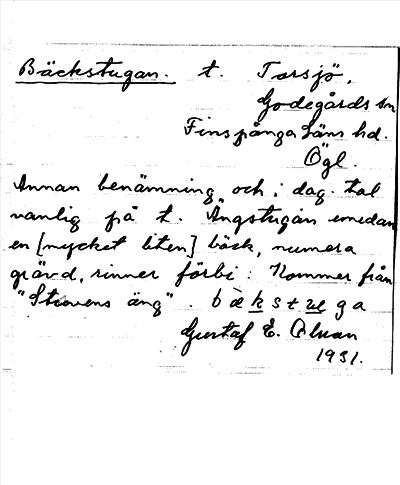 Bäckstugan. t. Torsjö,
Godegårds sn
Finspånga Läns hd.
Ögl.
Annan benämning och i dag. tal
vanlig på t. Ängstugan emedan
en [mycket liten] bäck, numera
grävd, rinner förbi: Kommer från
"Storvens äng". bäkstuga
Gustaf E. Olsson
1931.